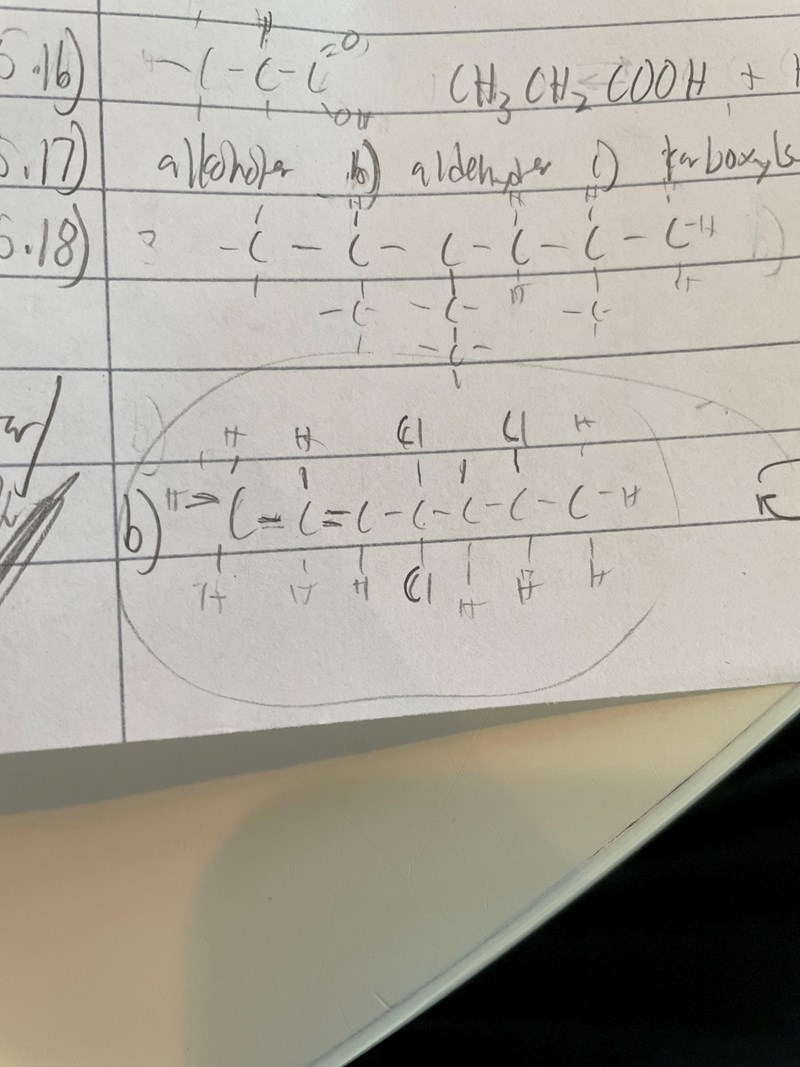 5.16) - C - C - C =O
OH
CH3 CH2 COOH +
5.17) alkoholer b) aldehyder c) karboxyls
5.18) ? - C - C - C - C - C - C - H
- C - - C - - C -
- C -
H H Cl Cl H
b) H - C - C = C - C - C - C - C - H
H H H Cl H H H